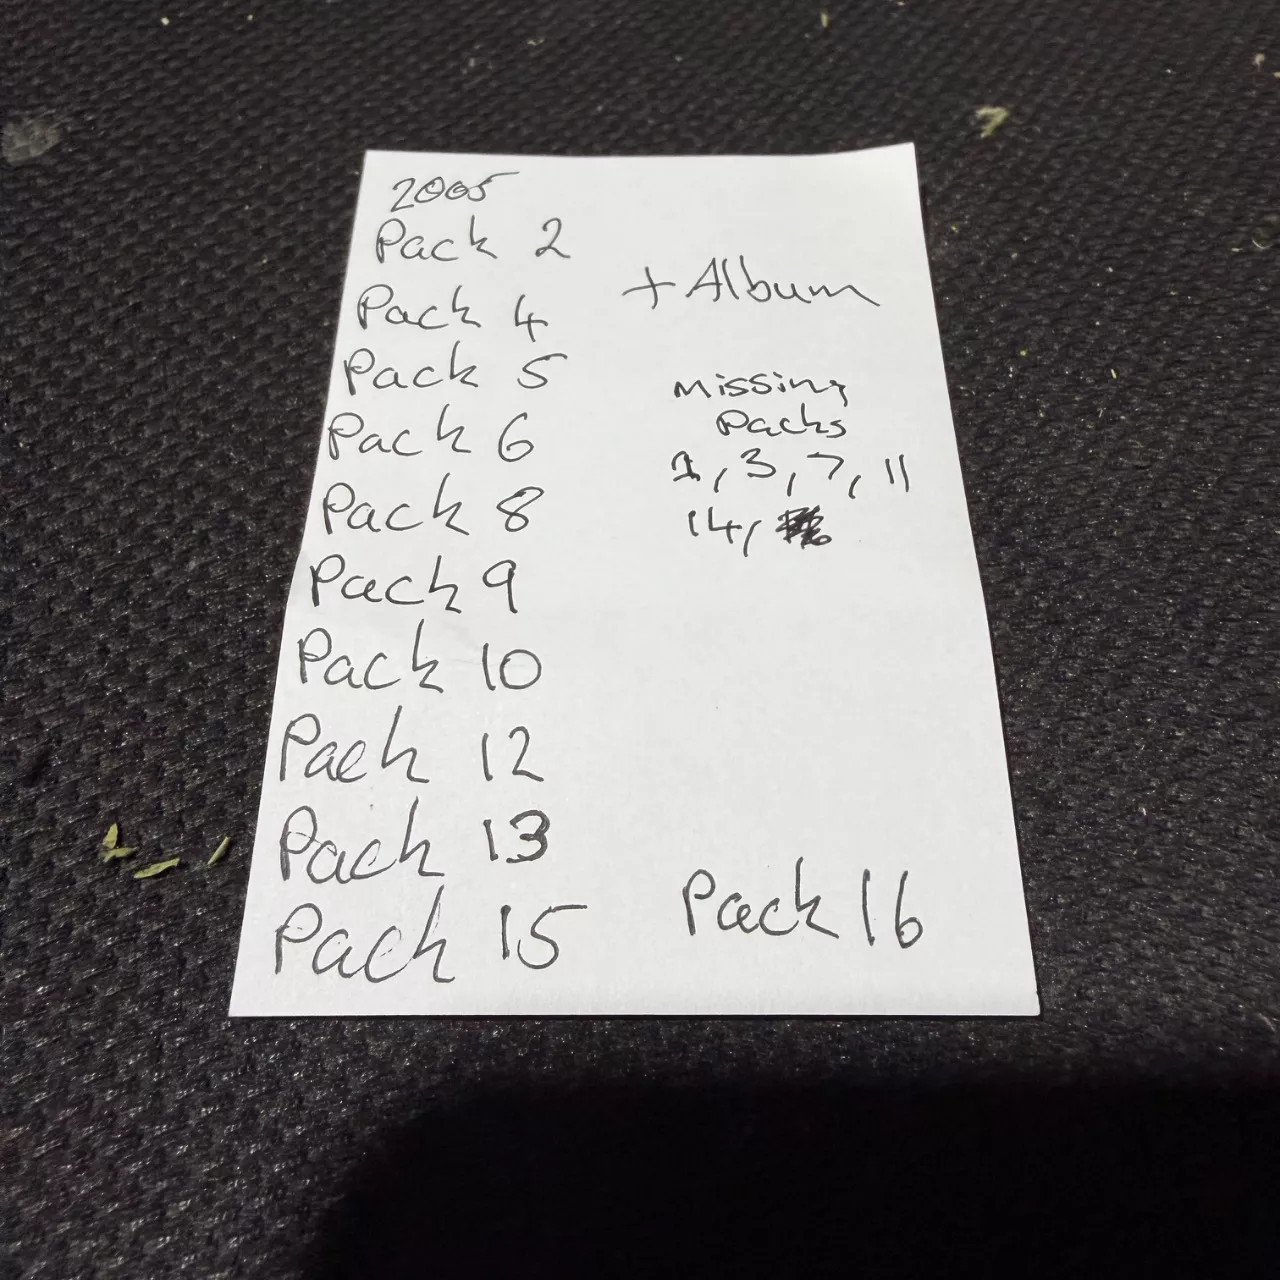 2005
Pack 2
+ Album
Pack 4
Pack 5
Pack 6
Pack 8
Pack 9
Pack 10
Pack 12
Pack 13
Pack 15
Missing
Packs
1, 3, 7, 11
14,
Pack 16